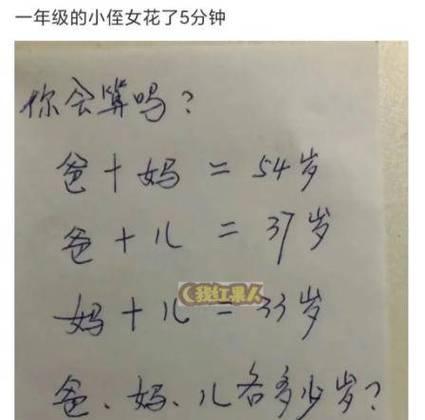 一年级的小侄女花了5分钟
你会算吗?
爸+妈=54岁
爸+儿=37岁
我红果人
妈+儿=33岁
爸、妈、儿各多少岁?